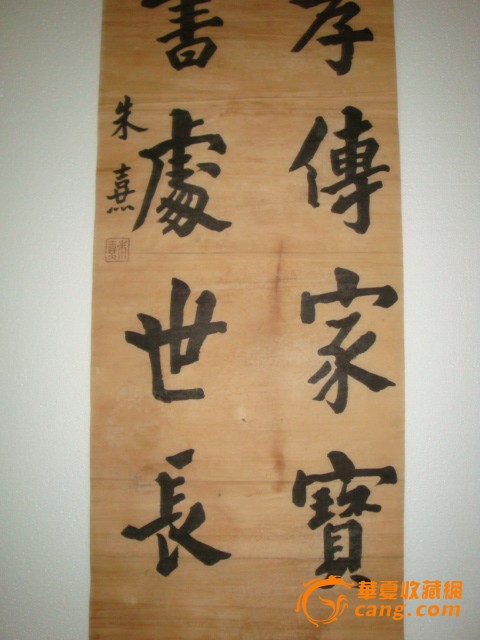 傳家寶
書處世長
朱熹
華夏收藏網
cang.com